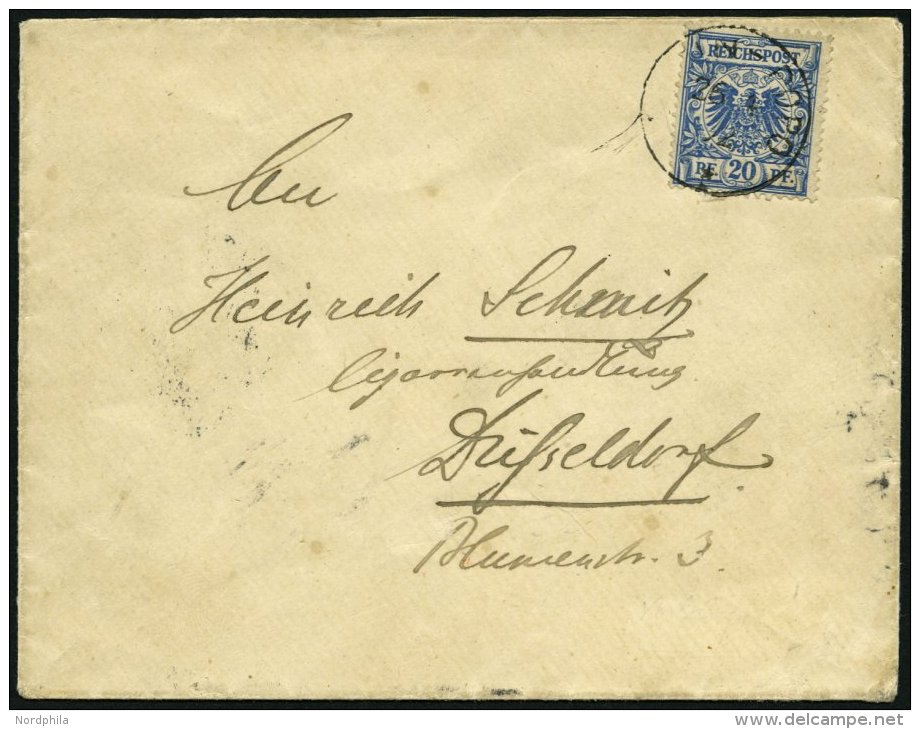 REICHSPOST
PF. 20 PF.
An
Heinrich Schmitz
Cigarrenhandlung
Düsseldorf
Blumenstr. 3
Nordphila
www.delcampe.net